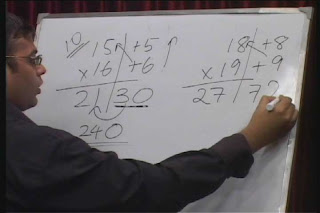 10 15 +5
× 16 +6
21 30
240
18 +8
× 19 +9
27 72